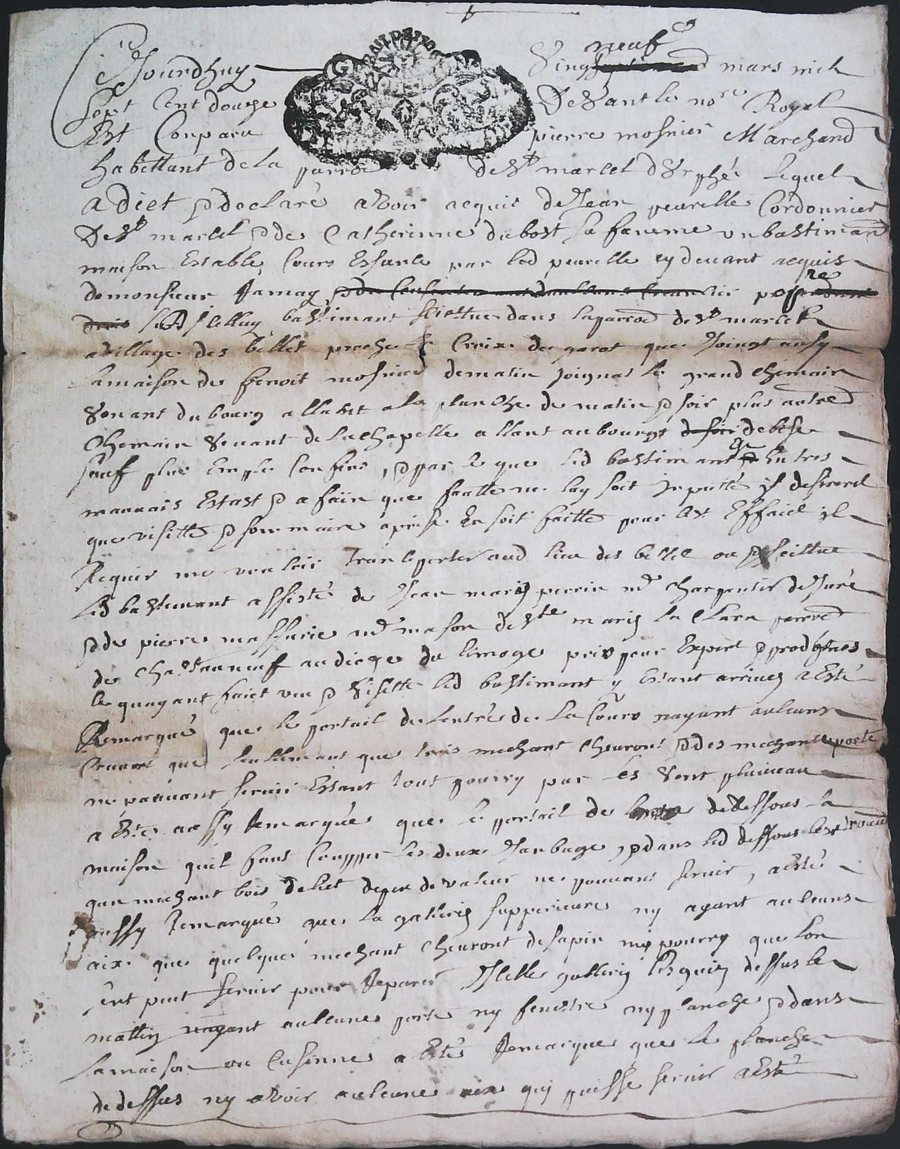 Ce Jourdhuy vingt neuf mars mil
sept cent douze devant le no.re Royal
Est Comparu pierre mosnier Marchand
habettant de la parro de St marcel d'urphé lequel
a diet & declaré avoir acquis de Jean peurelle Cordonnier
de St marcel & de Catherinne dubost sa famme un bastimand
maison Estable Cours par led peurelle cy devant acquis
de monsieur Jamay
bastimant scittue dans la parro de St marcel
village des bellet proche Croix de que Joingt
la maison de benoit mosnier de matin joignat le grand chemain
venant du bourg allant a la planche de matin & soir plus autre
Chemain venant de la chapelle allant au bourgt de bise
sauf plus emple confins, & par ce que led bastimant en tres
mauvais Estast & a fain que faulte ne luy soit Imputé il desireroit
que visitte & sommaire aprise en soit faitte pour cet Effaict il
Requis me vouloir transporter aud lieu des belle ou scittue
led bastimant assisté de Jean marij perrin me charpantier de
& de pierre massurie me mason de Ste marij la Clara parro
de Chastauneuf au dioceze de limoge pris pour Expert &
lequayant faict vue & visitte led bastimant y Estant arrives a Esté
Remarqué que le portail de lentrée de la Cours nayant auleune
que seullemant que trois mechant cheuront & des mechante porte
ne pouvant servir Estant tout pourry par les vent pluieau
a Este aussy Remarqué que le portail de dedessous la
maison quil faut coupper les deux Janbage, & dans led dessous
que mechant bois de liet de peu de valeur ne pouvant servir, a Esté
aussy Remarqué que la gallerij supperieure ny ayant auleuns
aix que quelque mechant cheuront de sapin my pourry que lon
sent peut servir pour Reparer Jcelle gallerij dessus le
mattin nayant auleune porte ny fenestre ny planche & dans
la maison ou Cuisinne a Esté Remarque que le planche
de dessus ny avoir auleune aix quj puisse servir a Esté